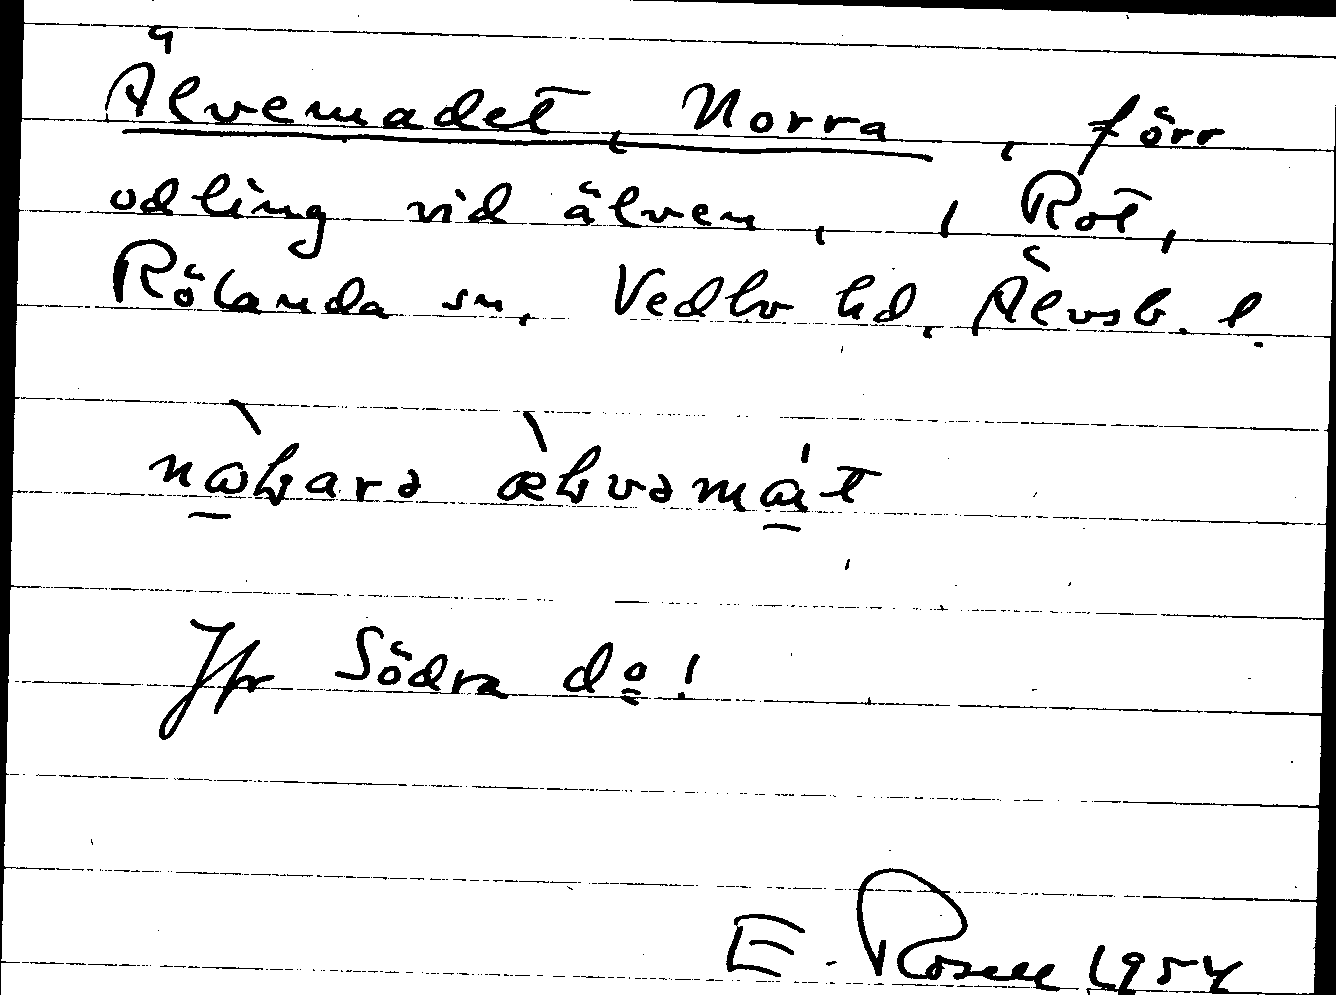 Älvemadet, Norra, förr
odling vid älven, i Rot,
Rölanda sn, Vedbo hd, Älvsb. l.
Jfr Södra do!
E. Rosell 1954